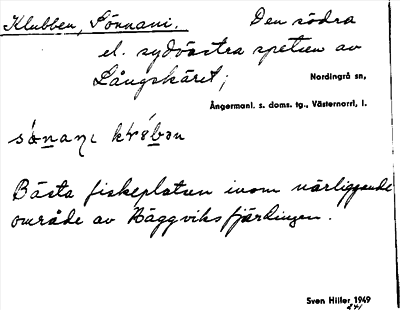 Klubben, Sönnani. Den södra
el. sydvästra spetsen av
Långskäret;
Nordingrå sn,
Ångermanl. s. doms. tg., Västernorrl. l.
Bästa fiskeplatsen inom närliggande
område av Häggviksfjärdingen.
Sven Hiller 1949